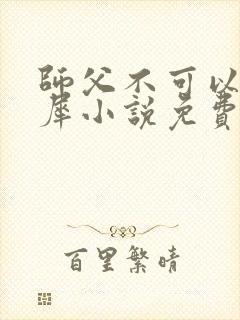 師父不可以
犀小說免費
百里繁晴